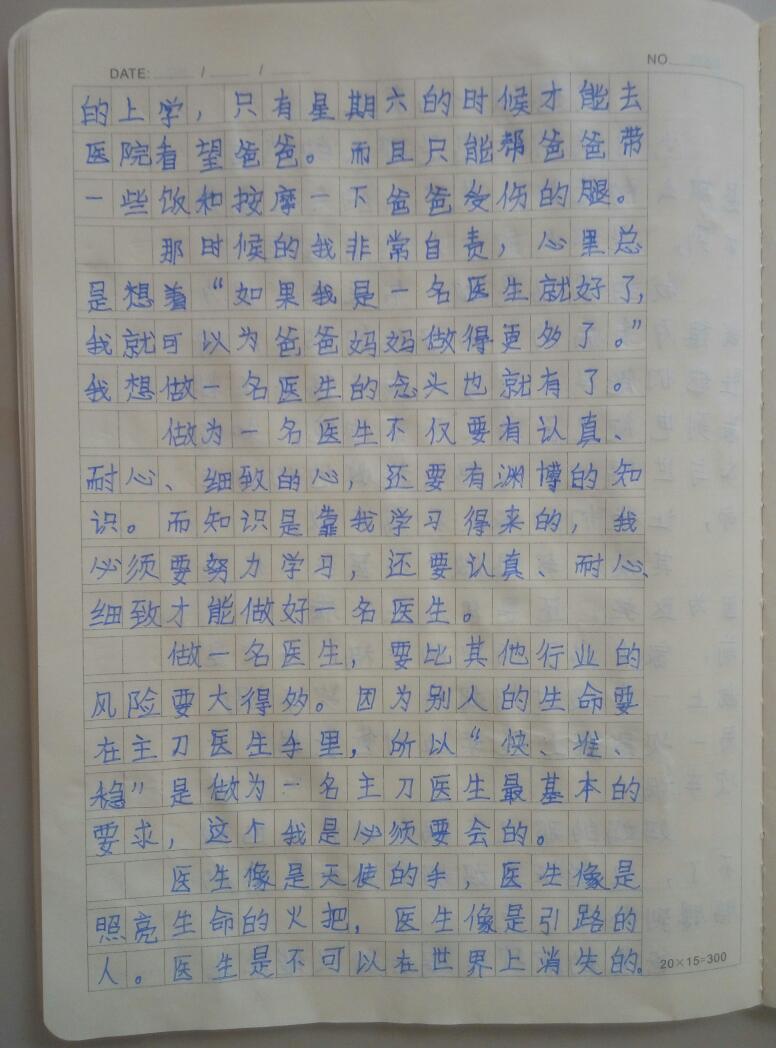 DATE: / /
NO
的上学，只有星期六的时候才能去
医院看望爸爸。而且只能帮爸爸带
一些饭和按摩一下爸爸受伤的腿。
那时候的我非常自责，心里总
是想着“如果我是一名医生就好了，
我就可以为爸爸妈妈做得更多了。”
我想做一名医生的念头也就有了。
做为一名医生不仅要有认真、
耐心、细致的心，还要有渊博的知
识。而知识是靠我学习得来的，我
必须要努力学习，还要认真、耐心、
细致才能做好一名医生。
做一名医生，要比其他行业的
风险要大得多。因为别人的生命要
在主刀医生手里，所以“快、准、
稳”是做为一名主刀医生最基本的
要求，这个我是必须要会的。
医生像是天使的手，医生像是
照亮生命的火把，医生像是引路的
人。医生是不可以在世界上消失的。
20×15=300